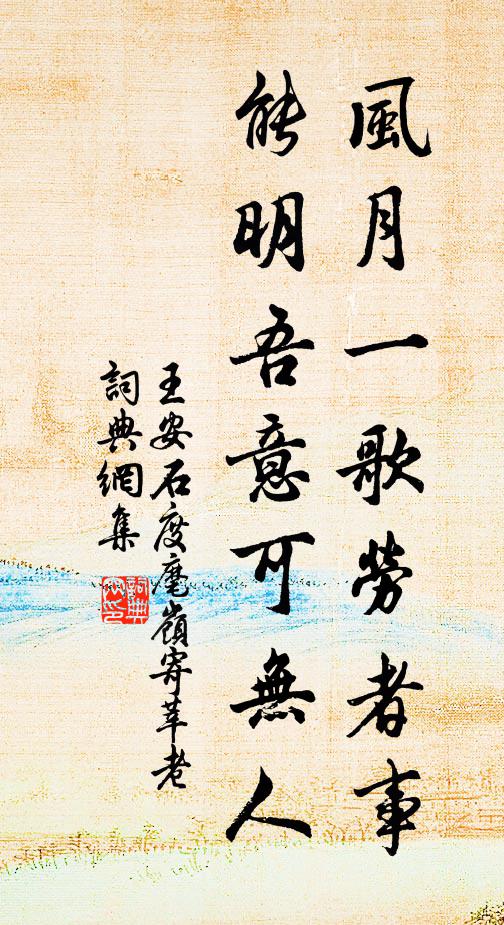 風月一歌勞者事
能明吾意可無人
王安石度麾嶺寄莘老
詞典網集